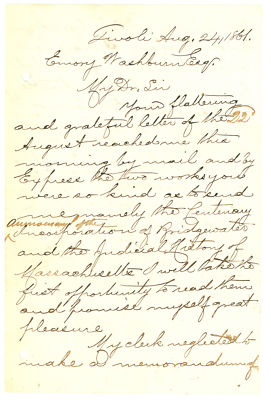 Tivoli Aug. 24, 1861.
Emory Washburn Esq.
My Dr. Sir
Your flattering
and grateful letter of the 22
August reached me this
morning by mail and by
Express the two works you
were so kind as to send
me namely the Centenary
Anniversary of the
incorporation of Bridgewater
and the Judicial History of
Massachusetts I will take the
first opportunity to read them
and promise myself great
pleasure
My clerk neglected to
make a memorandum of